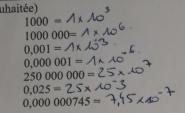 uhaitée)
1000 = 1 x 10³
1000 000 = 1 x 10⁶.
0,001 = 1 x 10⁻³
0,000 001 = 1 x 10⁻⁶.
250 000 000 = 25 x 10⁻⁷
0,025 = 25 x 10⁻³
0,000 000745 = 7,45 x 10⁻⁷